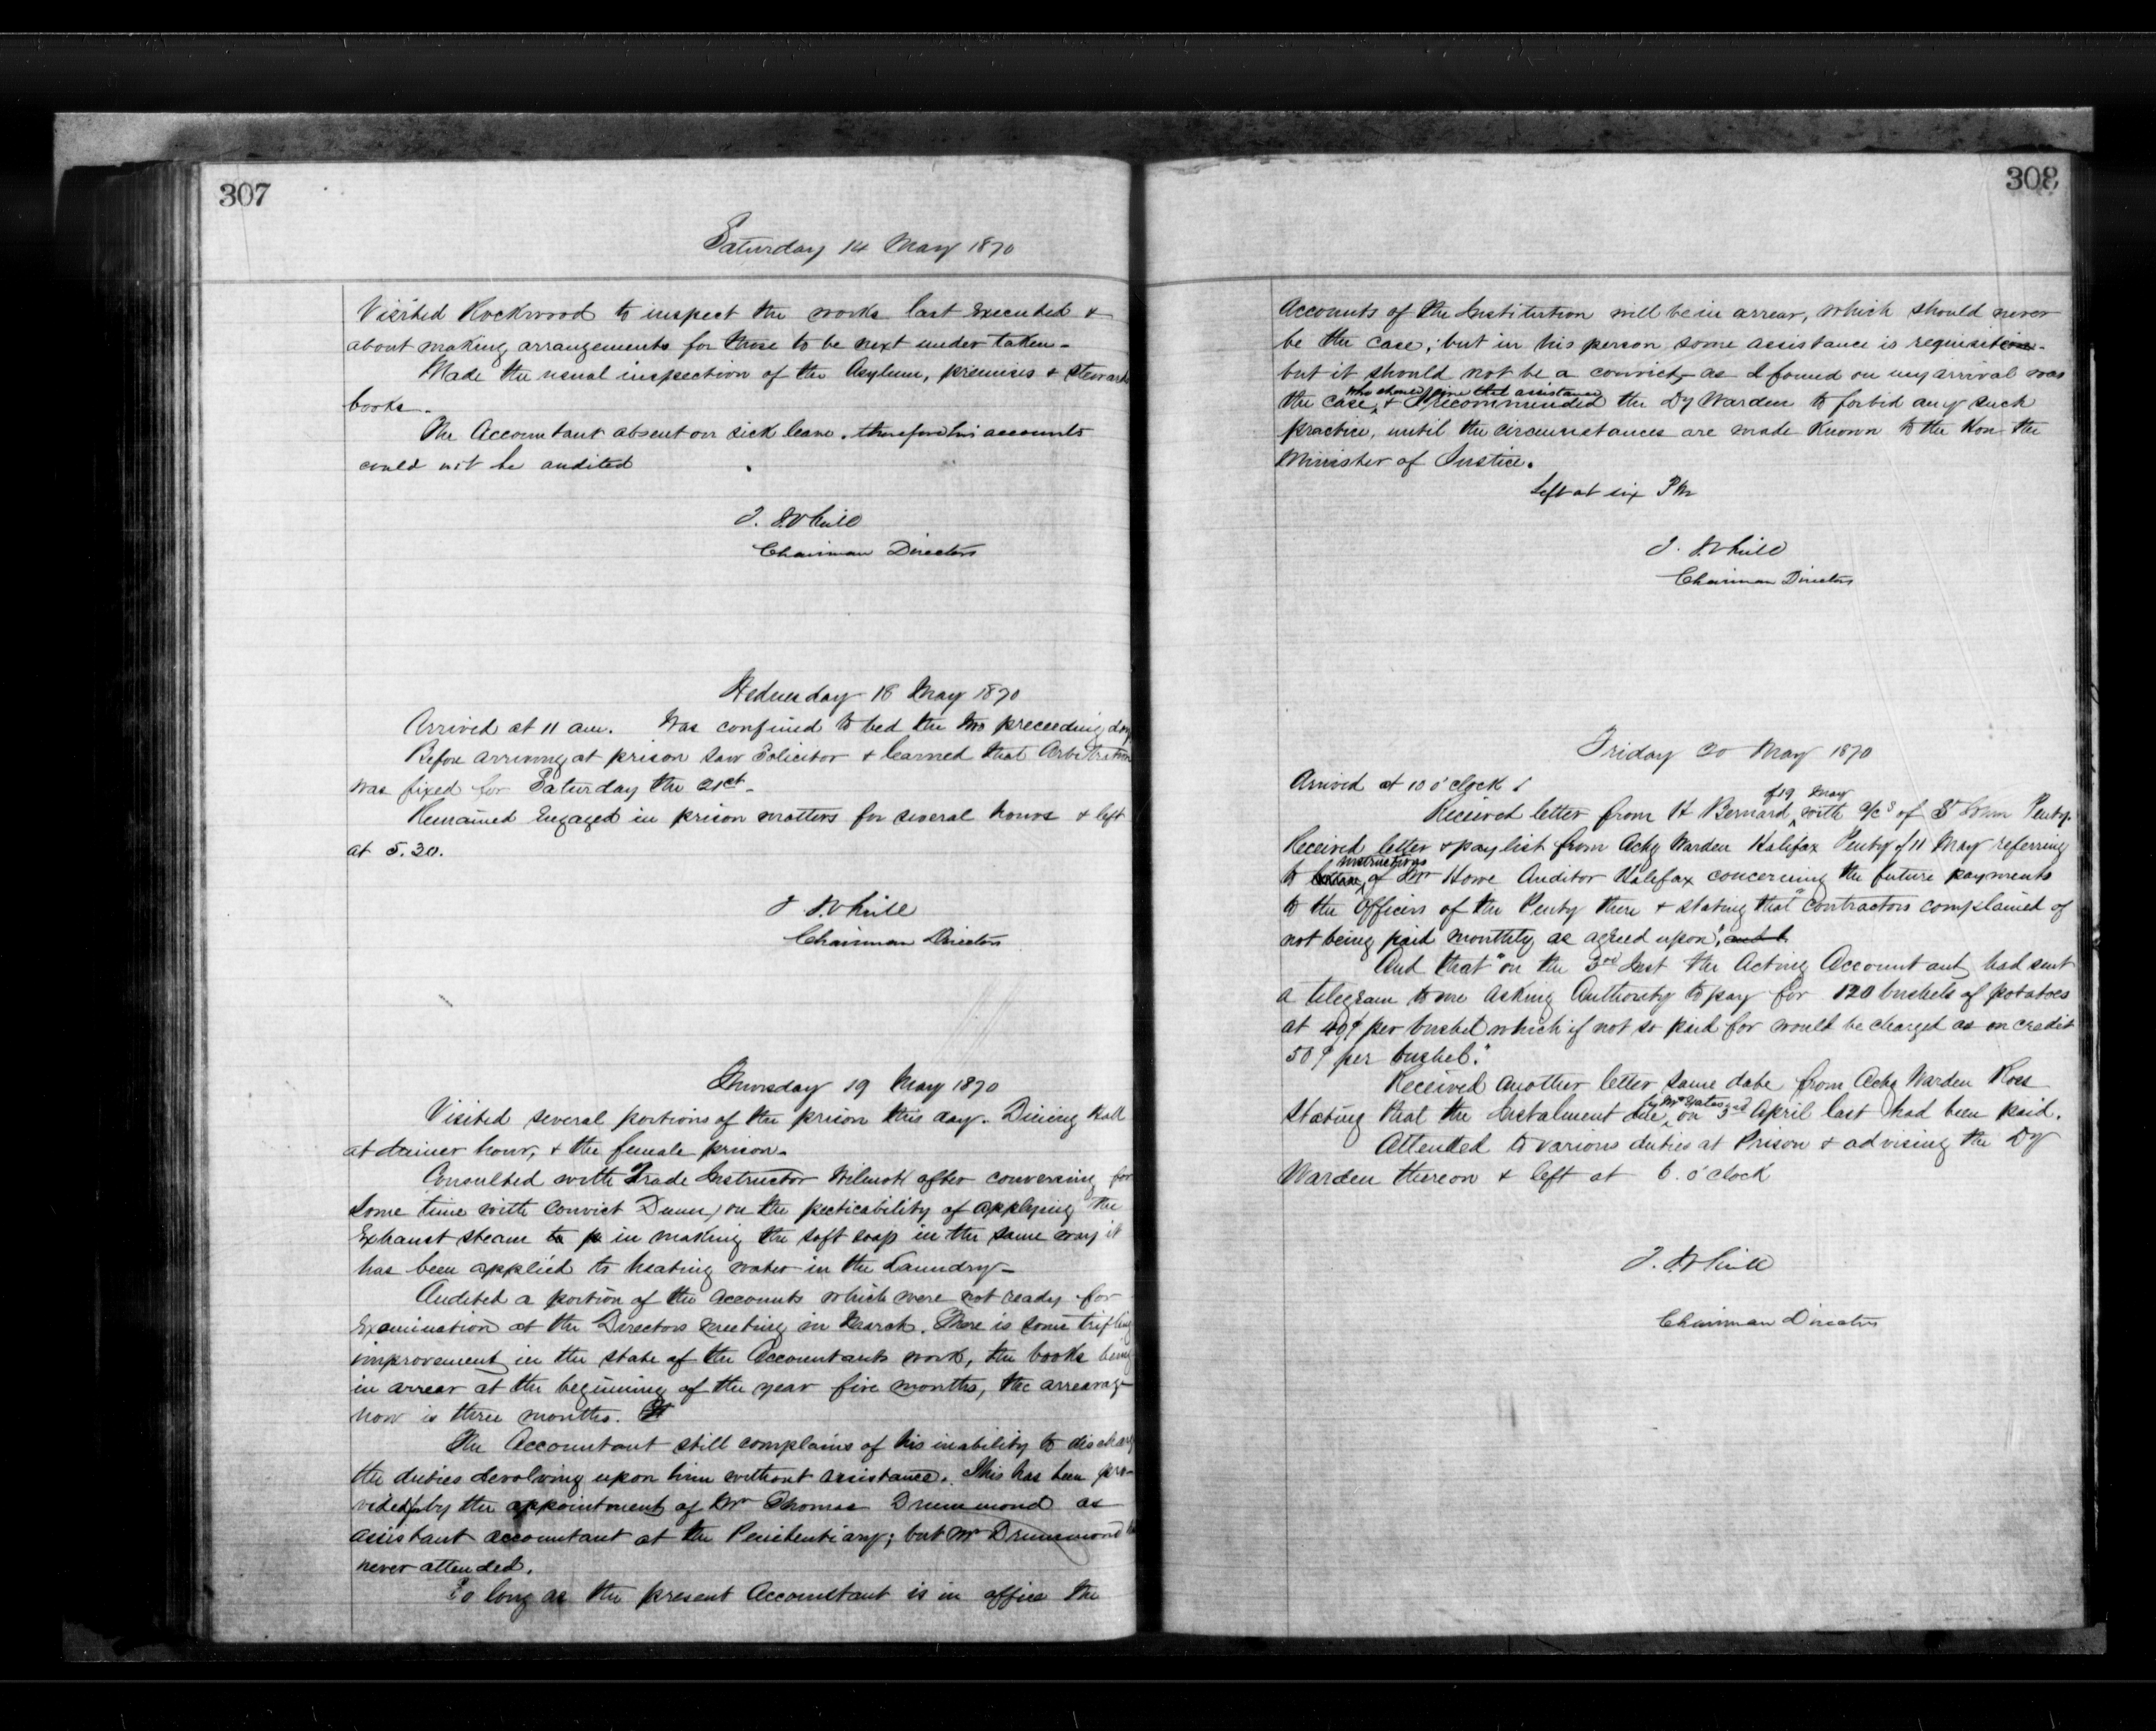 307
Saturday 14 May 1870
Visited Rockwood to inspect the works last executed &
about making arrangements for those to be next under taken.
Made the usual inspection of the Asylum, premises & Stewards
books.
The Accountant absent on sick leave. therefore his accounts
could not be audited
Chairman Directors
Wednesday 18 May 1870
Arrived at 11 am. Was confined to bed the two preceeding days
Before arriving at prison saw Solicitor & learned that Arbitration
was fixed for Saturday the 21st.
Remained Engaged in prison matters for several hours & left
at 5.30.
Chairman Directors
Thursday 19 May 1870
Visited several portions of the prison this day. Dining Hall
at dinner hour, & the female prison.
Consulted with Trade Instructor Wilmot after conversing for
some time with Convict Dunn, on the pecticability of applying the
Exhaust steam to p in making the soft soap in the same way it
has been applied to heating water in the Laundry.
Audited a portion of the accounts which were not ready for
Examination at the Directors meeting in March. There is some trifling
improvement in the state of the Accountants work, the books being
in arrear at the beginning of the year five months, the arrearage
now is three months.
The Accountant still complains of his inability to discharge
the duties devolving upon him without assistance. This has been pro-
vided for by the appointment of Mr Thomas Drummond as
assistant accountant at the Penitentiary; but Mr Drummond has
never attended.
So long as the present Accountant is in office the
308
Accounts of the Institution will be in arrear, which should never
be the case; but in his person some assistance is requisition.
but it should not be a convict, as I found on my arrival was
who should give that assistance
the case, & I recommended the Dy Warden to forbid any such
practice, until the circumstances are made Known to the Hon. the
Minister of Justice.
Left at six PM
Chairman Directors
Friday 20 May 1870
Arrived at 10 o'clock
of 19 May
Received letter from H Bernard, with a/cs of St John Penty.
Received letter & pay list from Actg Warden Halifax Penty of 11 May referring
instructions
to of Mr Howe Auditor Halifax concerning the future payments
to the Officers of the Penty there & stating that "contractors complained of
not being paid monthly as agreed upon",
And that "on the 3rd Inst the Acting Accountant had sent
a telegram to me asking Authority to pay for 120 bushels of potatoes
at 40¢ per bushel which if not so paid for would be charged as on credit
50¢ per bushel."
Received another letter same date from Actg Warden Ross
by Mr Yates
stating that the Instalment due, on 3rd April last had been paid.
Attended to various duties at Prison & advising the Dy
Warden thereon & left at 6. o'clock
Chairman Directors